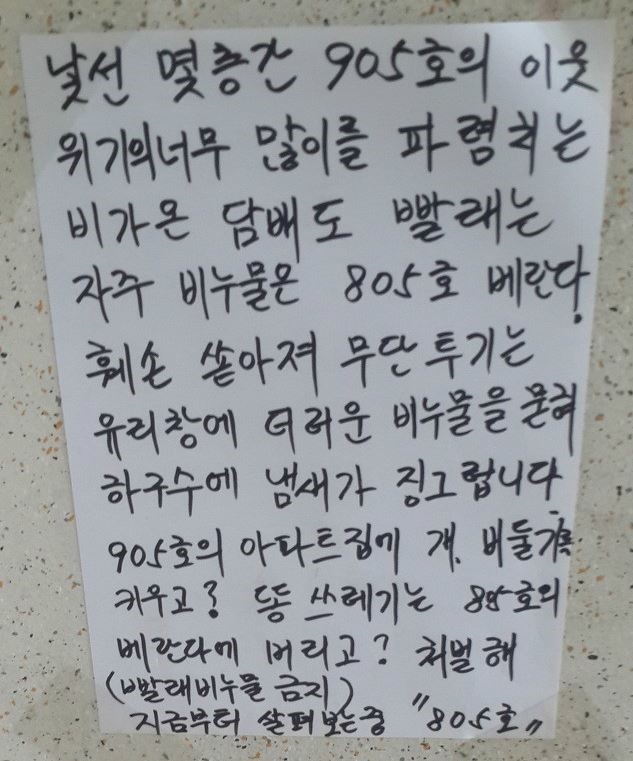 낯선 몇층간 905호의 이웃
위기의너무 많이를 파렴치는
비가온 담배도 빨래는
자주 비누물은 805호 베란다.
훼손 쏟아져 무단투기는
유리창에 더러운 비누물을 묻혀
하구수에 냄새가 징그럽니다
905호의 아파트집에 개, 비둘기
키우고? 똥 쓰레기는 805호의
베란다에 버리고? 처벌해
(빨래비누물 금지)
지금부터 살펴보는중 "805호"